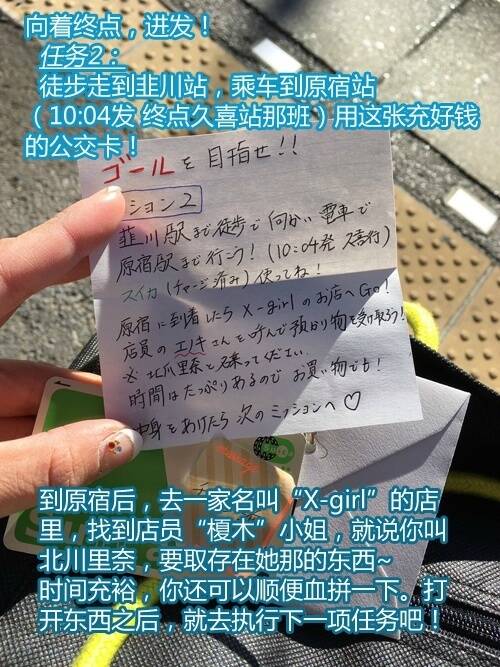 向着终点，进发！
任务2：
徒步走到韭川站，乘车到原宿站
（10:04发 终点久喜站那班）用这张充好钱
的公交卡！
ゴールを目指せ!!
ション2
韮川駅まで徒歩で向かい電車で
原宿駅まで行こう！(10:04発 久喜行)
スイカ(チャージ済み)使ってね！
原宿に到着したらX-girlのお店へGo!
店員のエノキさんを呼んで預かり物を受け取ろう!
※北川里奈と名乗ってください
時間はたっぷりあるのでお買い物でも!
中身をあけたら次のミッションへ♡
到原宿后，去一家名叫“X-girl”的店
里，找到店员“榎木”小姐，就说你叫
北川里奈，要取存在她那的东西~
时间充裕，你还可以顺便血拼一下。打
开东西之后，就去执行下一项任务吧！